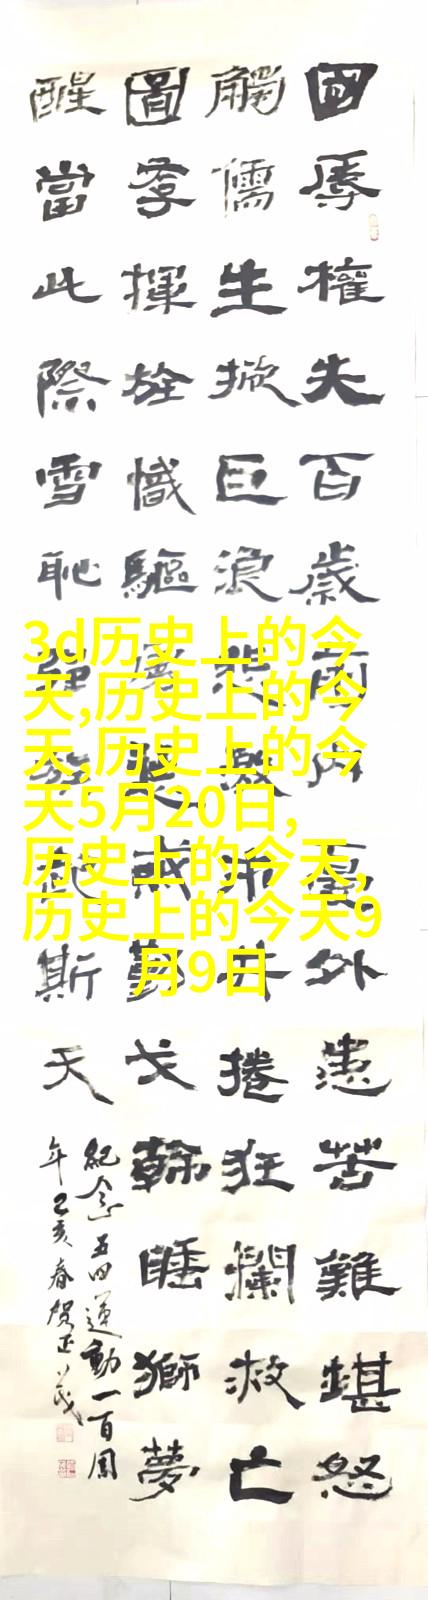 國辱權失百歲雨内憂外患苦難堪怒
觸儒生掀巨浪市井捲狂瀾救亡
圖存揮旌幟驅戈翰睡獅夢
醒當此際雪恥強斯天
紀念五四運動一百周
年己亥春贺正茂
3d历史上的今
天,历史上的今
天,历史上的今
天5月20日,
历史上的今天,
历史上的今天9
月9日